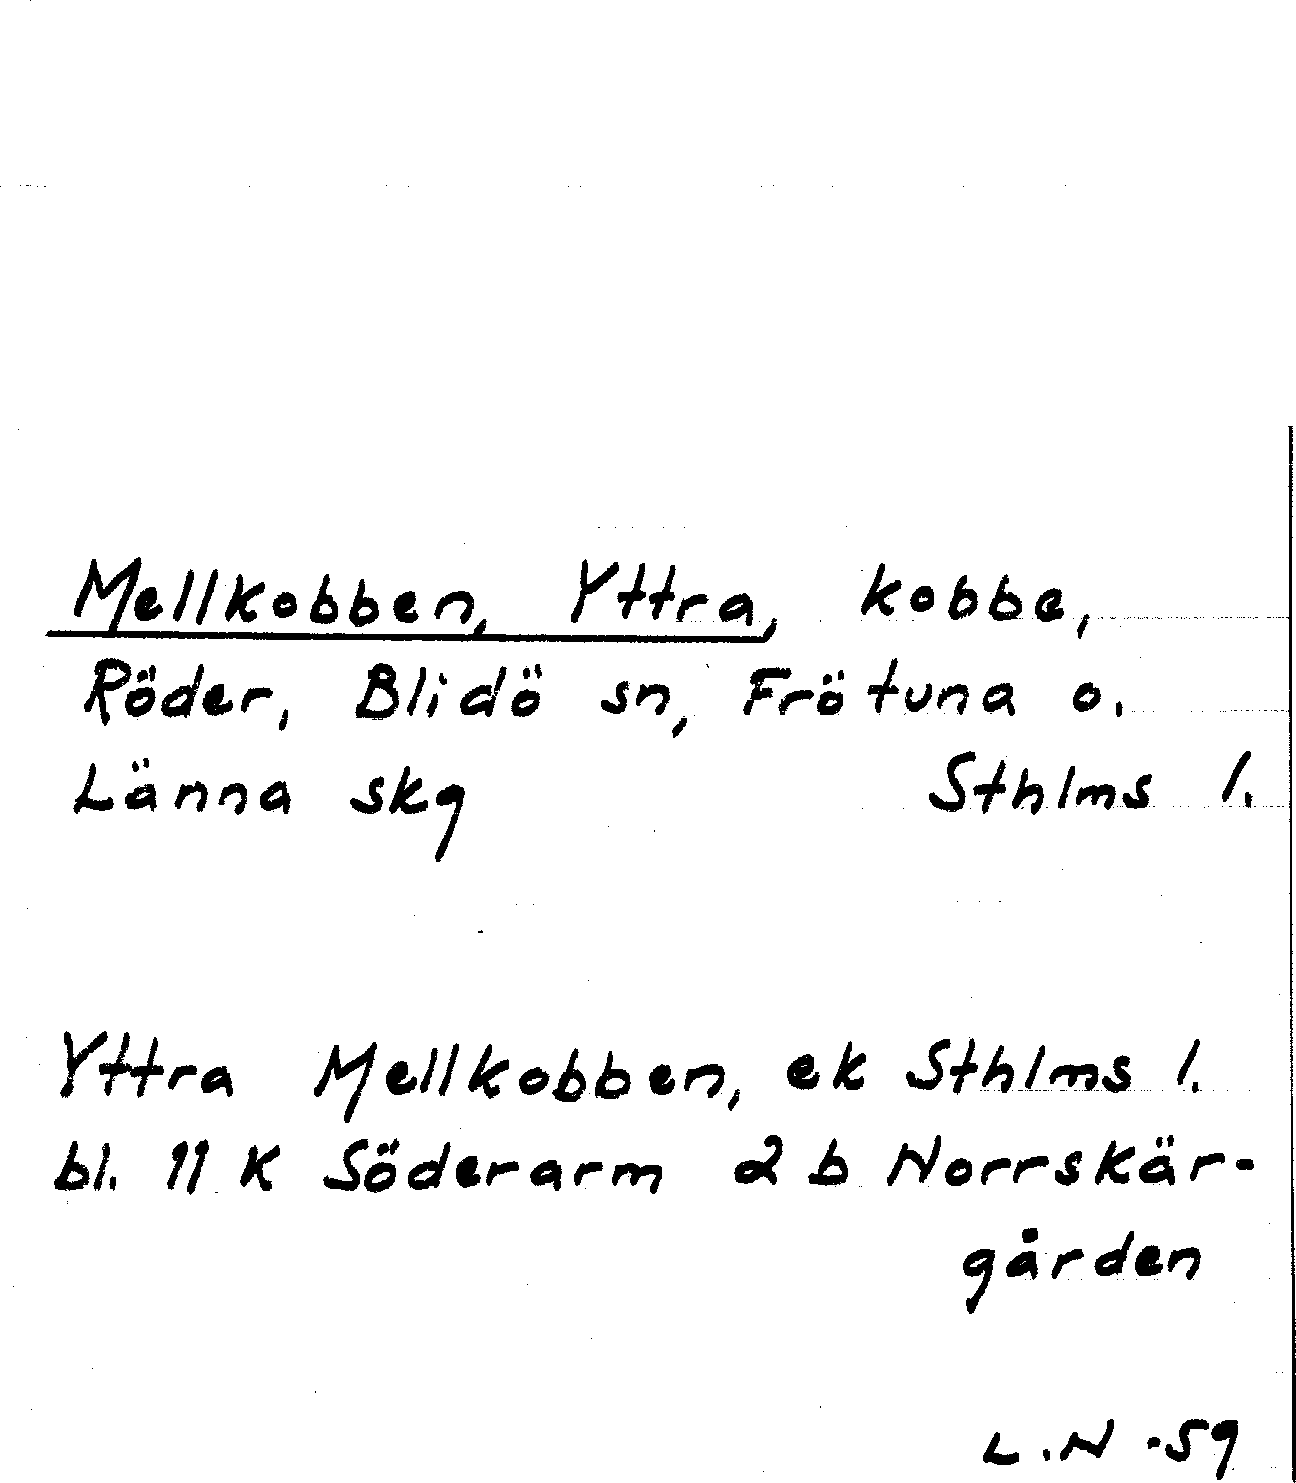 Mellkobben, Yttra, kobbe,
Röder, Blidö sn, Frötuna o.
Länna skg Sthlms l.
Yttra Mellkobben, ek Sthlms l.
bl. 11 K Söderarm 2 b Norrskär-
gården
L.N -59